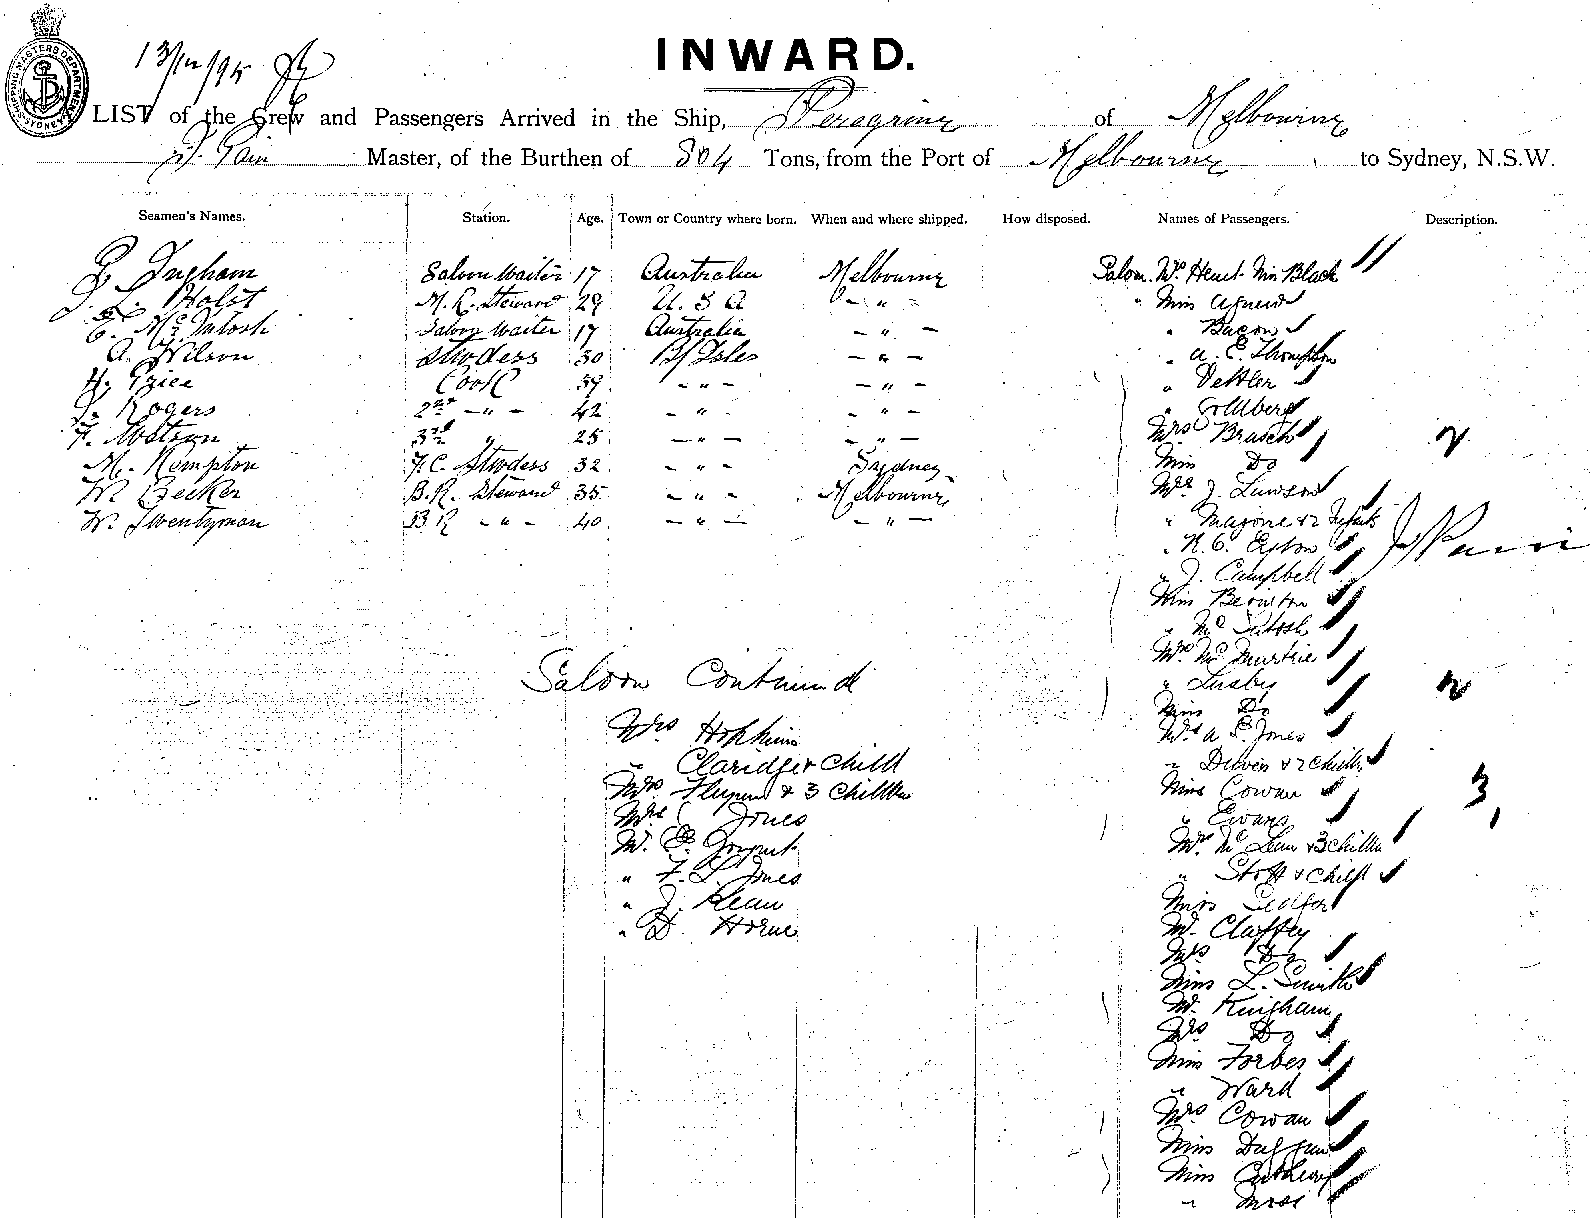 SHIPPING MASTERS DEPARTMENT SYDNEY
13/12/95
INWARD.
LIST of the Crew and Passengers Arrived in the Ship, Peregrine of Melbourne
J. Pain Master, of the Burthen of 804 Tons, from the Port of Melbourne to Sydney, N.S.W.
Seamen's Names. Station. Age. Town or Country where born. When and where shipped. How disposed. Names of Passengers. Description.
Ingham Saloon Waiter 17 Australia Melbourne
Holst M. R. Steward 29 U. S A — " —
C. McIntosh Saloon Waiter 17 Australia — " —
A. Wilson Stwdess 30 B/ Isles — " —
H. Price Cook 39 — " — — " —
Rogers 2nd — " — 42 — " — — " —
F. Watson 3rd " 25 — " — — " —
M. Kempton F.C. Stwdess 32 — " — Sydney
W. Becker B.R. Steward 35 — " — Melbourne
W. Twentyman B R — " — 40 — " — — " —
Saloon Mr. Heart Miss Black
" Miss Agnew
" Bacon
" A. E. Thompson
" Vettler
" Goldberg
Mrs Brasch 2
Miss Do
Mrs J. Lawson
" & 2 Infants
"
" J. Campbell
Miss
" McIntosh
Mrs
" Lusby 2
Miss Do
Mrs A E. Jones
" & 2 Children
Miss Cowan 3
" Evans 1
Mrs McLean & 3 Children
" Stott & Child
Miss
Mr. Claffey
Mrs Do
Miss L. Smith
Mr. Kingham
Mrs Do
Miss Forbes
" Ward
Mrs Cowan
Miss Duggan
Miss
" Moss
J. Pain
Saloon Continued
Mrs Hopkins
" Claridge & Child
Mrs & 3 Children
Mrs Jones
Mr. E.
" F. L. Jones
" J. Kean
" D. Horne